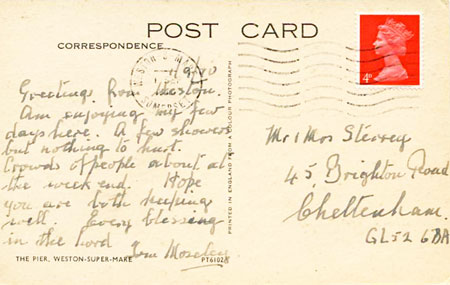 POST CARD
CORRESPONDENCE
Greetings from Weston.
Am enjoying my few
days here. A few showers
but nothing to hurt.
Crowds of people about at
the week end. Hope
you are both keeping
well. Every blessing
in the Lord
Tom Moseley
THE PIER, WESTON-SUPER-MARE
PT61028
PRINTED IN ENGLAND FROM A COLOUR PHOTOGRAPH
4D
Mr & Mrs
45, Brighton Road
Cheltenham.
GL52 6BA